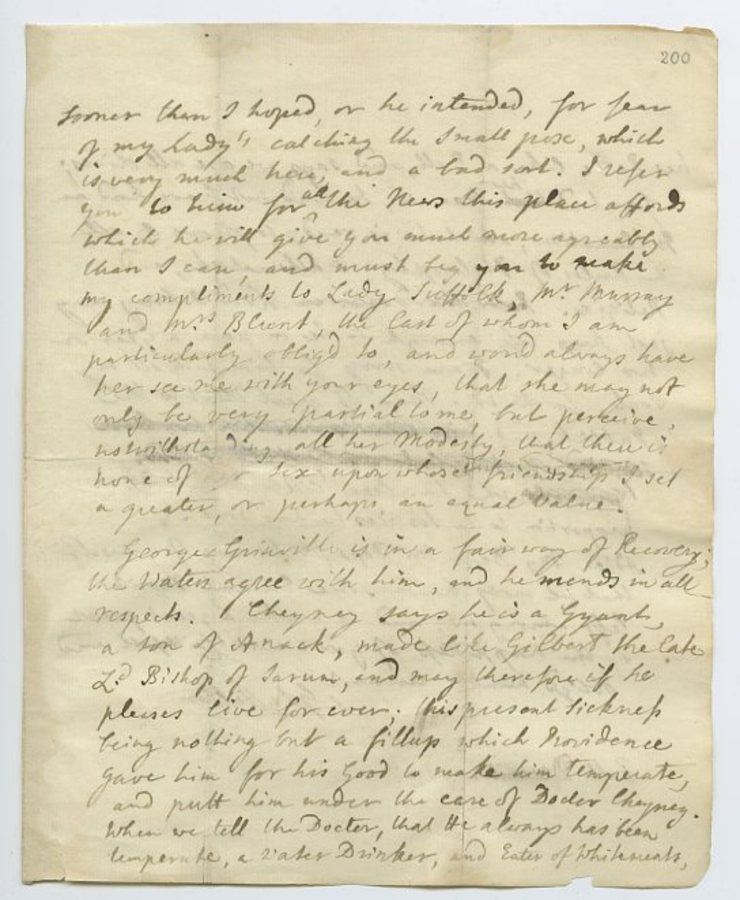 200
sooner than I hoped, or he intended, for fear
of my Lady's catching the Small pox, which
is very much here, and a bad sort. I refer
you to him for all the News this place affords
which he will give you much more agreably
than I can, and must beg you to make
my compliments to Lady Suffolk, Mr Murray
and Mrs Blount, the last of whom I am
particularly oblig'd to, and wou'd always have
her see me with your eyes, that she may not
only be very partial to me, but perceive,
notwithstanding all her Modesty, that there is
none of Sex upon whose friendship I set
a greater, or perhaps an equal Value.
George Grinville is in a fair way of Recovery;
the Waters agree with him, and he mends in all
respects. Cheyney says he is a Gyant,
a son of Anack, made like Gilbert the late
Ld Bishop of Sarum, and may therefore if he
pleases live for ever; this present Sickness
being nothing but a fillup which Providence
gave him for his Good to make him temperate,
and putt him under the care of Docter Cheyney.
When we tell the Docter, that He always has been
temperate, a Water Drinker, and Eater of Whitemeats,